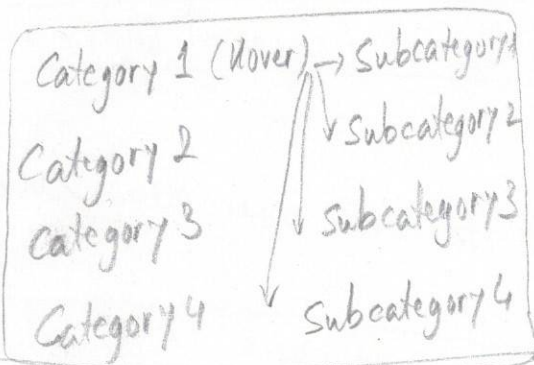 Category 1 (Hover) → Subcategory 1
Category 2 Subcategory 2
Category 3 Subcategory 3
Category 4 Subcategory 4